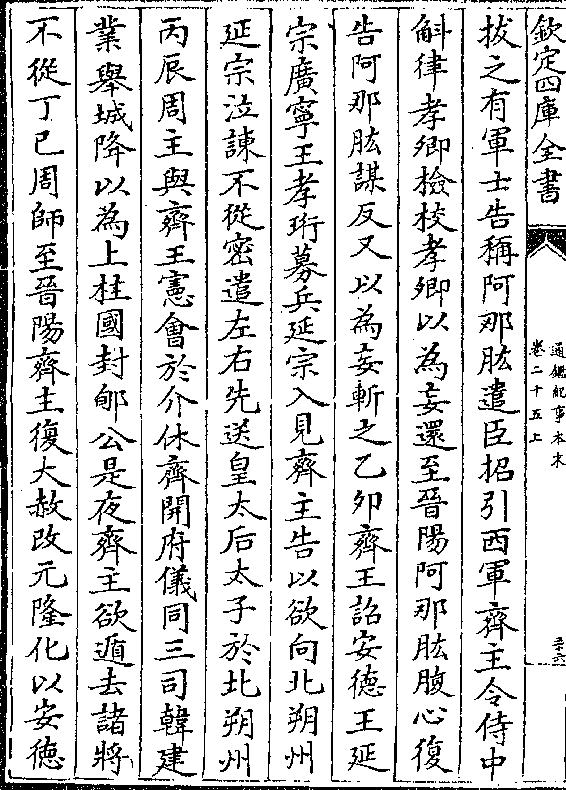 欽定四庫全書
通鑑紀事本末
卷二十五上
三十六
拔之有軍士告稱阿那肱遣臣招引西軍齊主令侍中
斛律孝卿檢校孝卿以為妄還至晉陽阿那肱腹心復
告阿那肱謀反又以為妄斬之乙卯齊王詔安德王延
宗廣寧王孝珩募兵延宗入見齊主告以欲向北朔州
延宗泣諫不從密遣左右先送皇太后太子於北朔州
丙辰周主與齊王憲會於介休齊開府儀同三司韓建
業舉城降以為上柱國封郇公是夜齊主欲遁去諸將
不從丁巳周師至晉陽齊主復大赦改元隆化以安德